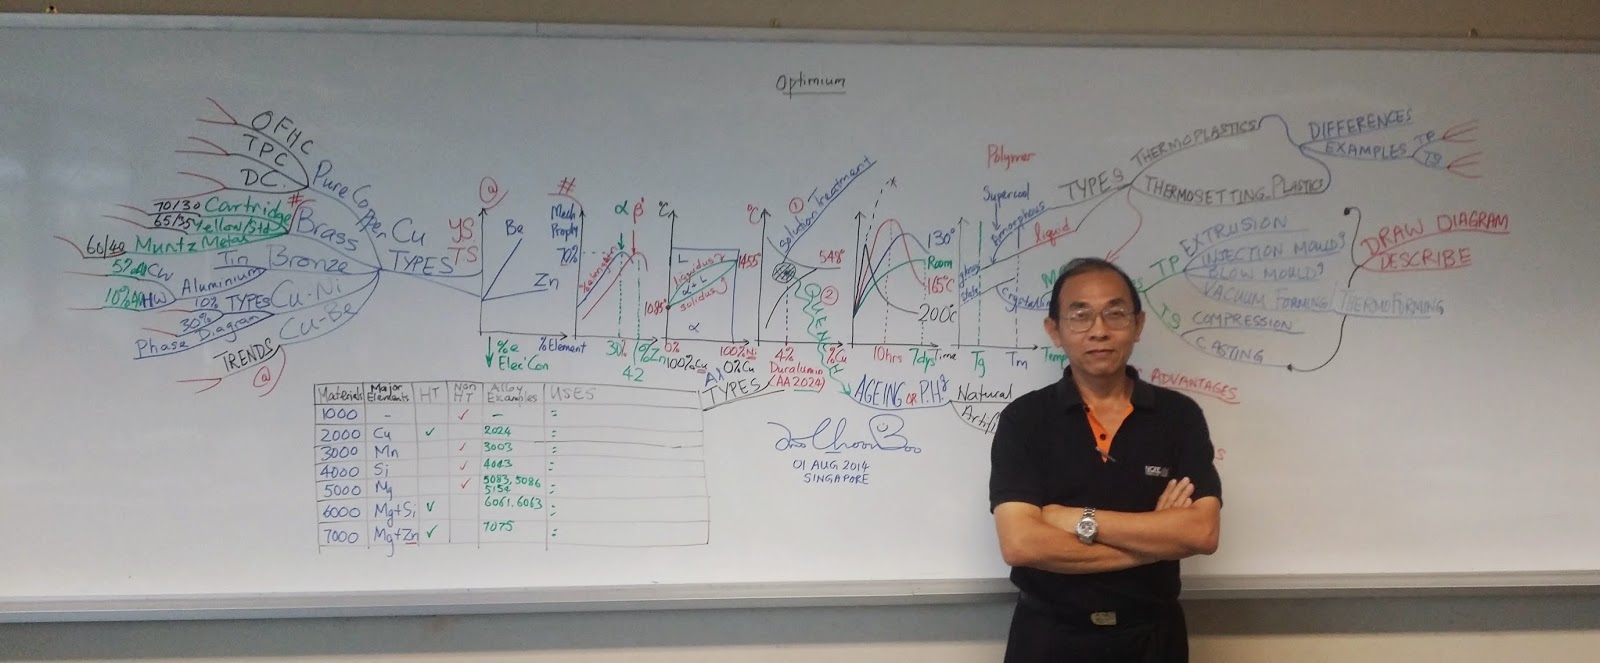 Optimium
OFHC
TPC
DC.
Pure Copper
70/30 Cartridge
65/35 Yellow/Std
60/40 Muntz Metal
#
Brass
Tin
Bronze
Aluminium
5% CW
10% HW
10%
30%
TYPES
Cu-Ni
Phase Diagram
Cu-Be
TRENDS
@
Cu
TYPES
YS
TS
@
Be
Zn
%Element
%e
Elec' Con
#
Mech
Propty
70%
α
β'
30%
%Zn
42
°C
L
liquidus
α+L
solidus
α
1455
1085°
0%
100%Cu
100%Ni
0%Cu
°C
①
Solution Treatment
548°
②
QUENCH
4%
%Cu
Duralumin
(AA2024)
130°
Room
165°C
200°C
10hrs
7dys
Time
AGEING OR P.H
Natural
Al
TYPES
Polymer
Supercool
liquid
Amorphous
glassy
state
Tg
Tm
TYPES
THERMOPLASTICS
THERMOSETTING PLASTICS
DIFFERENCES
EXAMPLES
TP
TS
TP
EXTRUSION
INJECTION MOULDg
BLOW MOULDg
VACUUM FORMING/THERMOFORMING
TS
COMPRESSION
CASTING
DRAW DIAGRAM
DESCRIBE
ADVANTAGES
Materials Major Elements HT Non HT Alloy Examples USES
1000 - ✓ -
2000 Cu ✓ 2024
3000 Mn ✓ 3003
4000 Si ✓ 4043
5000 Mg ✓ 5083, 5086
5154
6000 Mg+Si ✓ 6061, 6063
7000 Mg+Zn ✓ 7075
01 AUG 2014
SINGAPORE